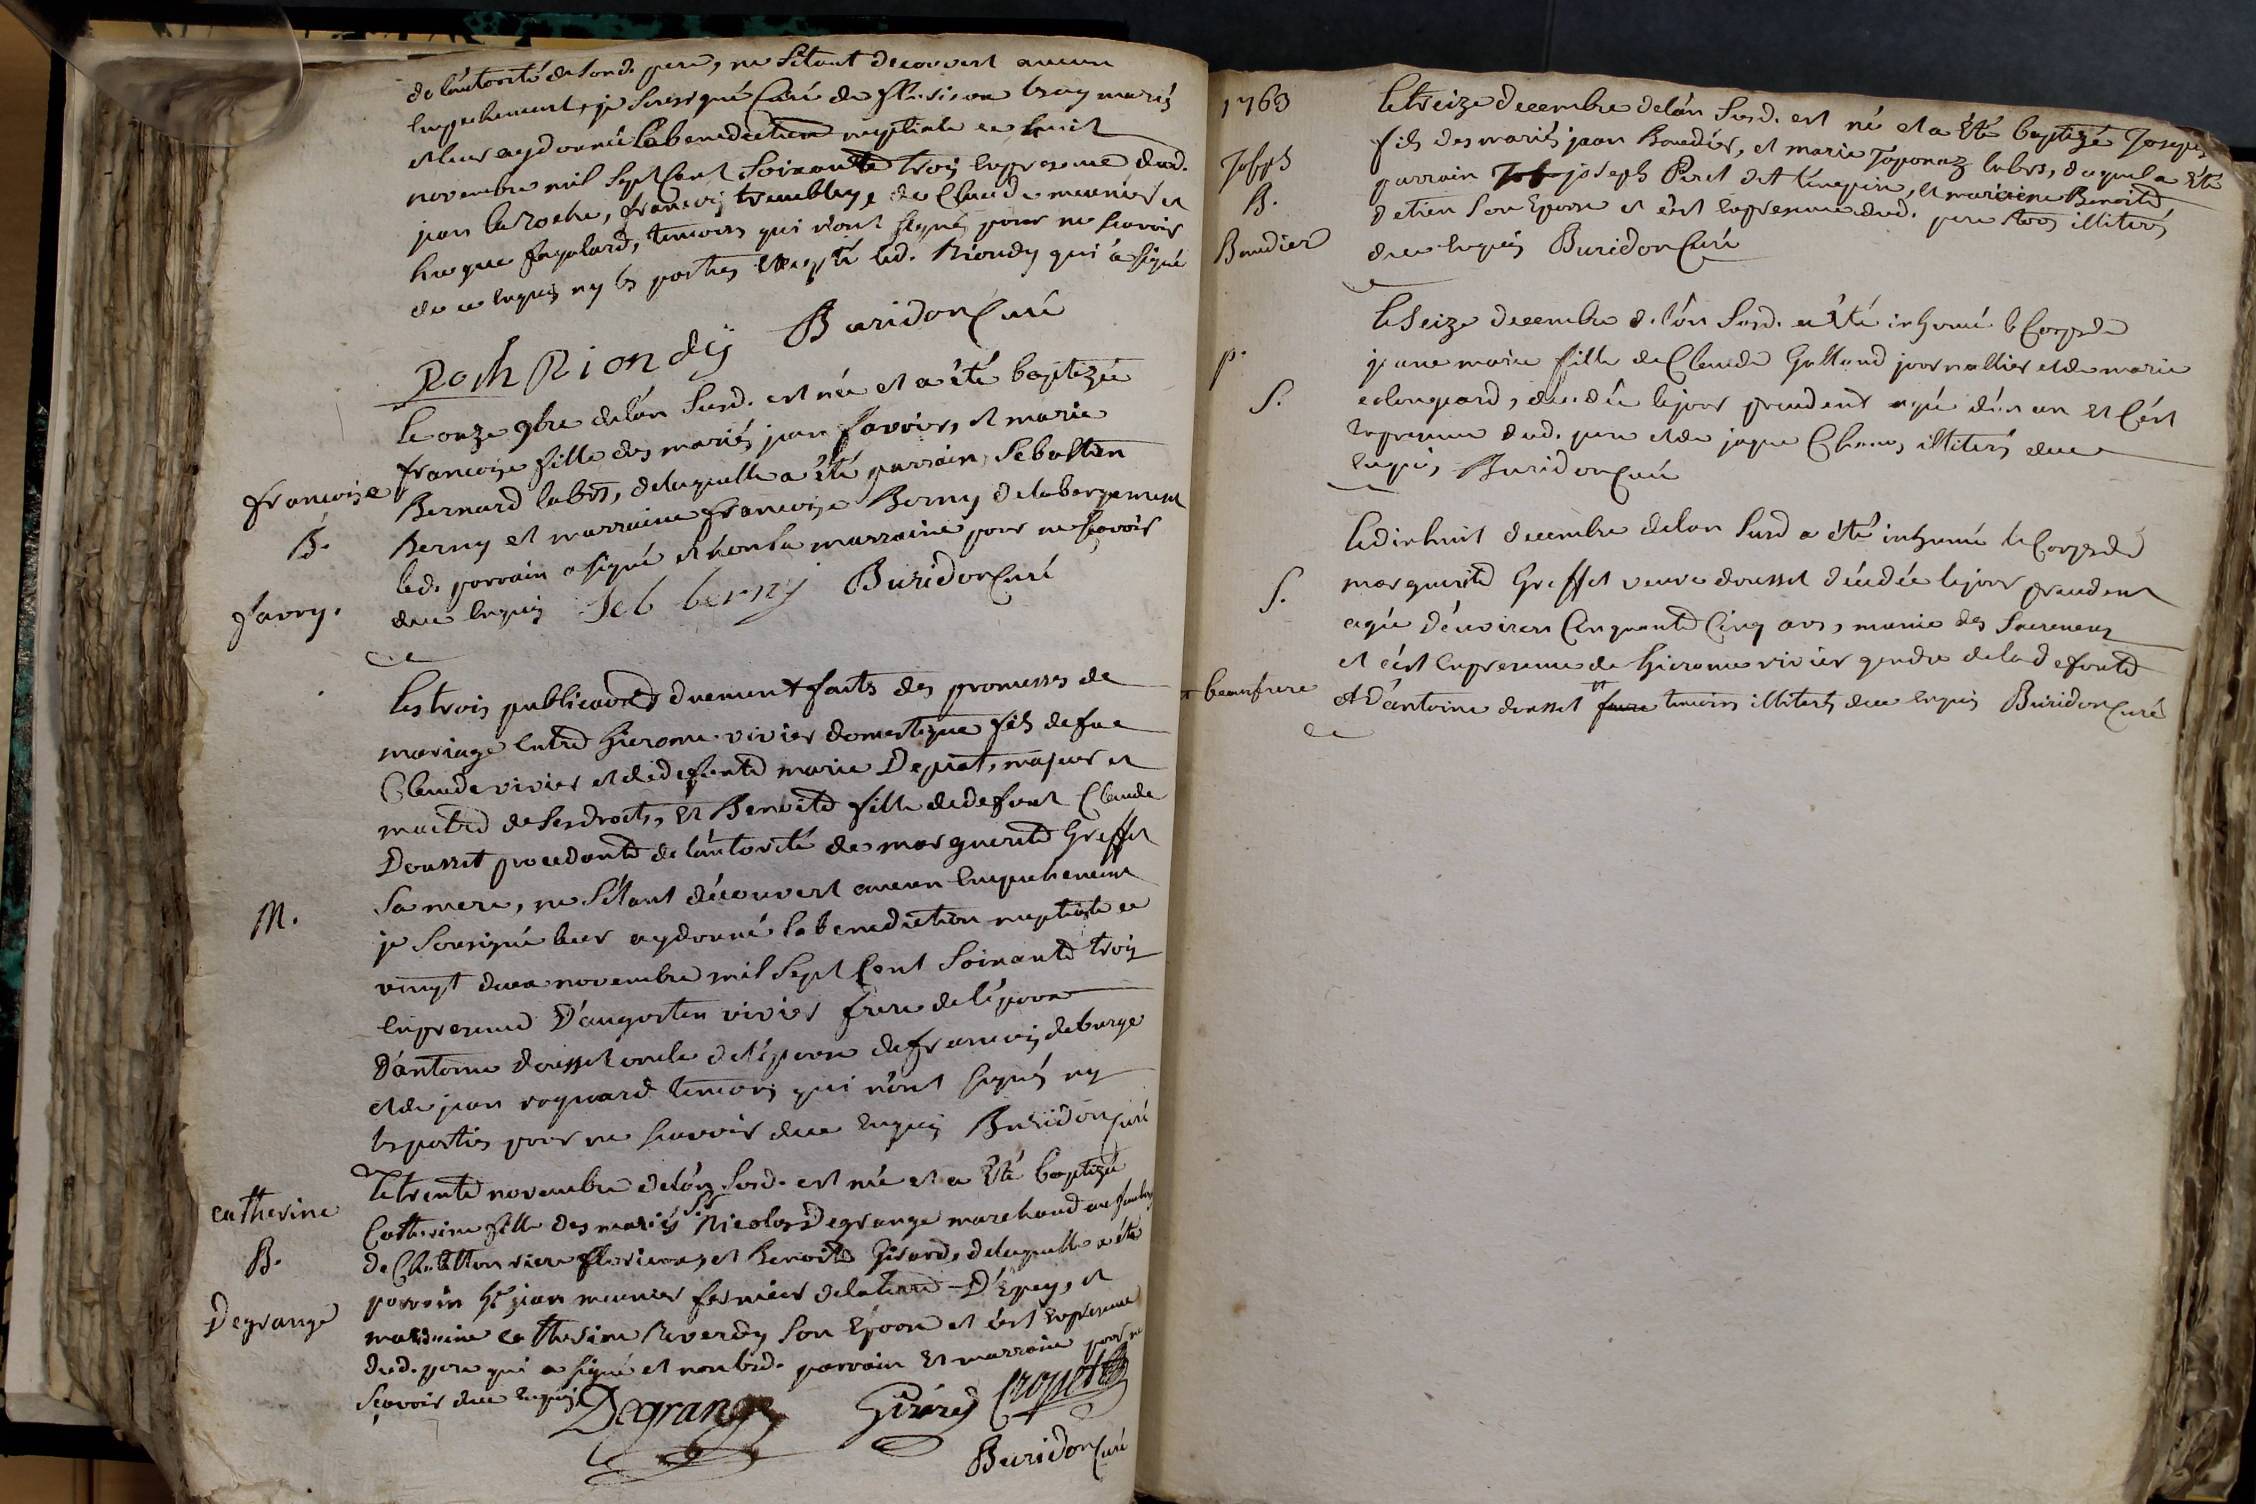 de l'autorité de sond. pere, ne s'étant decouvert aucun
empechement, je soussigné Curé de fluirieux les ay mariés
et leur ay donné la benediction nuptiale ce huit
novembre mil sept Cent soixante trois en presence dud.
jean la Roche, françois tremblay, de Claude meunier et
hugue fagolard, temoins qui n'ont signés pour ne sçavoir
de ce enquis ny les parties excepté led. Riondy qui a signé
Roch Riondÿ Buridon Curé
le onze 9bre de l'án susd. est née et a été baptizée
francoise fille des mariés jean favrier, et marie
Bernard labrs, de laquelle a été parrain Sebastien
Berny et marraine francoise Berny de labergement
led. parrain a signé et non la marraine pour ne sçavoir
de ce enquis Seb berny Buridon Curé
francoise
B.
favry.
les trois publications duement faites des promesses de
mariage entre hierome vivier domestique fils de feu
Claude vivier et de defunte marie Depiat, majeur et
maitre de ses droits, et Benoite fille de defunt Claude
Dousset procedante de l'autorité de marguerite Greffet
sa mere, ne s'étant découvert aucun empechement
je soussigné leur ay donné la benediction nuptiale ce
vingt deux novembre mil sept Cent soixante trois
en presence D'augustin vivier frere de l'epoux
D'antoine dousset oncle de l'epouse de francois deburge
et de jean roguard temoins qui n'ont signés ny
les parties pour ne sçavoir de ce enquis Buridon Curé
M.
le trente novembre de l'án susd. est née et a été baptizée
Catherine fille des mariés Sr Nicolas Degrange marchand au faubourg
de Chatillon riere fluirieux, et Benoite Girard, de laquelle a été
parrain Hte jean meunier fermier de la terre D'Epey, et
marraine catherine Reverdy son Epouse et c'est en presence
dud. pere qui a signé et non lesd. parrain et marraine pour ne
sçavoir de ce enquis Degrange Girard Cropet
Buridon Curé
catherine
B.
Degrange
1763
le treize decembre de l'án susd. est né et a été baptizé Joseph
fils des mariés jean Boudier, et marie Taponaz labrs, duquel a été
parrain joseph Peret dit turgin, et marraine Benoite
detien son Epouse et c'est en presence dud. pere tous illiterés
de ce enquis Buridon Curé
Joseph
B.
Boudier
le seize decembre de l'án susd. a été inhumé le Corps de
jeanne marie fille de Claude Galland journallier et de marie
colongeard, decedée le jour precedent agée d'un an et C'est
en presence dud. pere et de jaque Chanus illiterés de ce
enquis Buridon Curé
p.
S.
le dix huit decembre de l'an susd a été inhumé le Corps de
marguerite Greffet veuve dousset décédée le jour precedent
agée d'environ Cinquante Cinq ans, munie des sacremens
et c'est en presence de hierome vivier gendre de la defunte
et D'antoine dousset + frere temoins illiterés de ce enquis Buridon Curé
S.
+ beaufrere